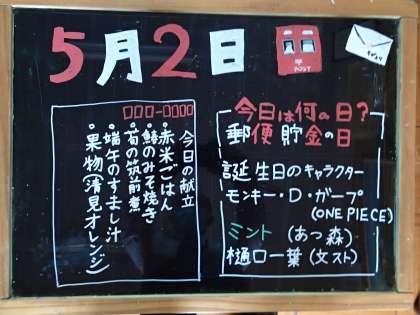 5月2日
〒
POST
今日の献立
•赤米ごはん
•鯖のみそ焼き
•筍の筑前煮
•端午のすまし汁
•果物(清見オレンジ)
今日は何の日?
郵便貯金の日
誕生日のキャラクター
モンキー・D・ガープ
(ONE PIECE)
ミント(あつ森)
樋口一葉(文スト)